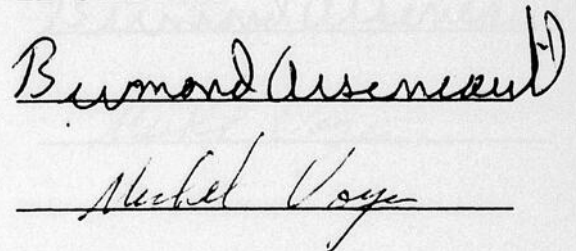 Bermond Arseneault
Michel Voyer